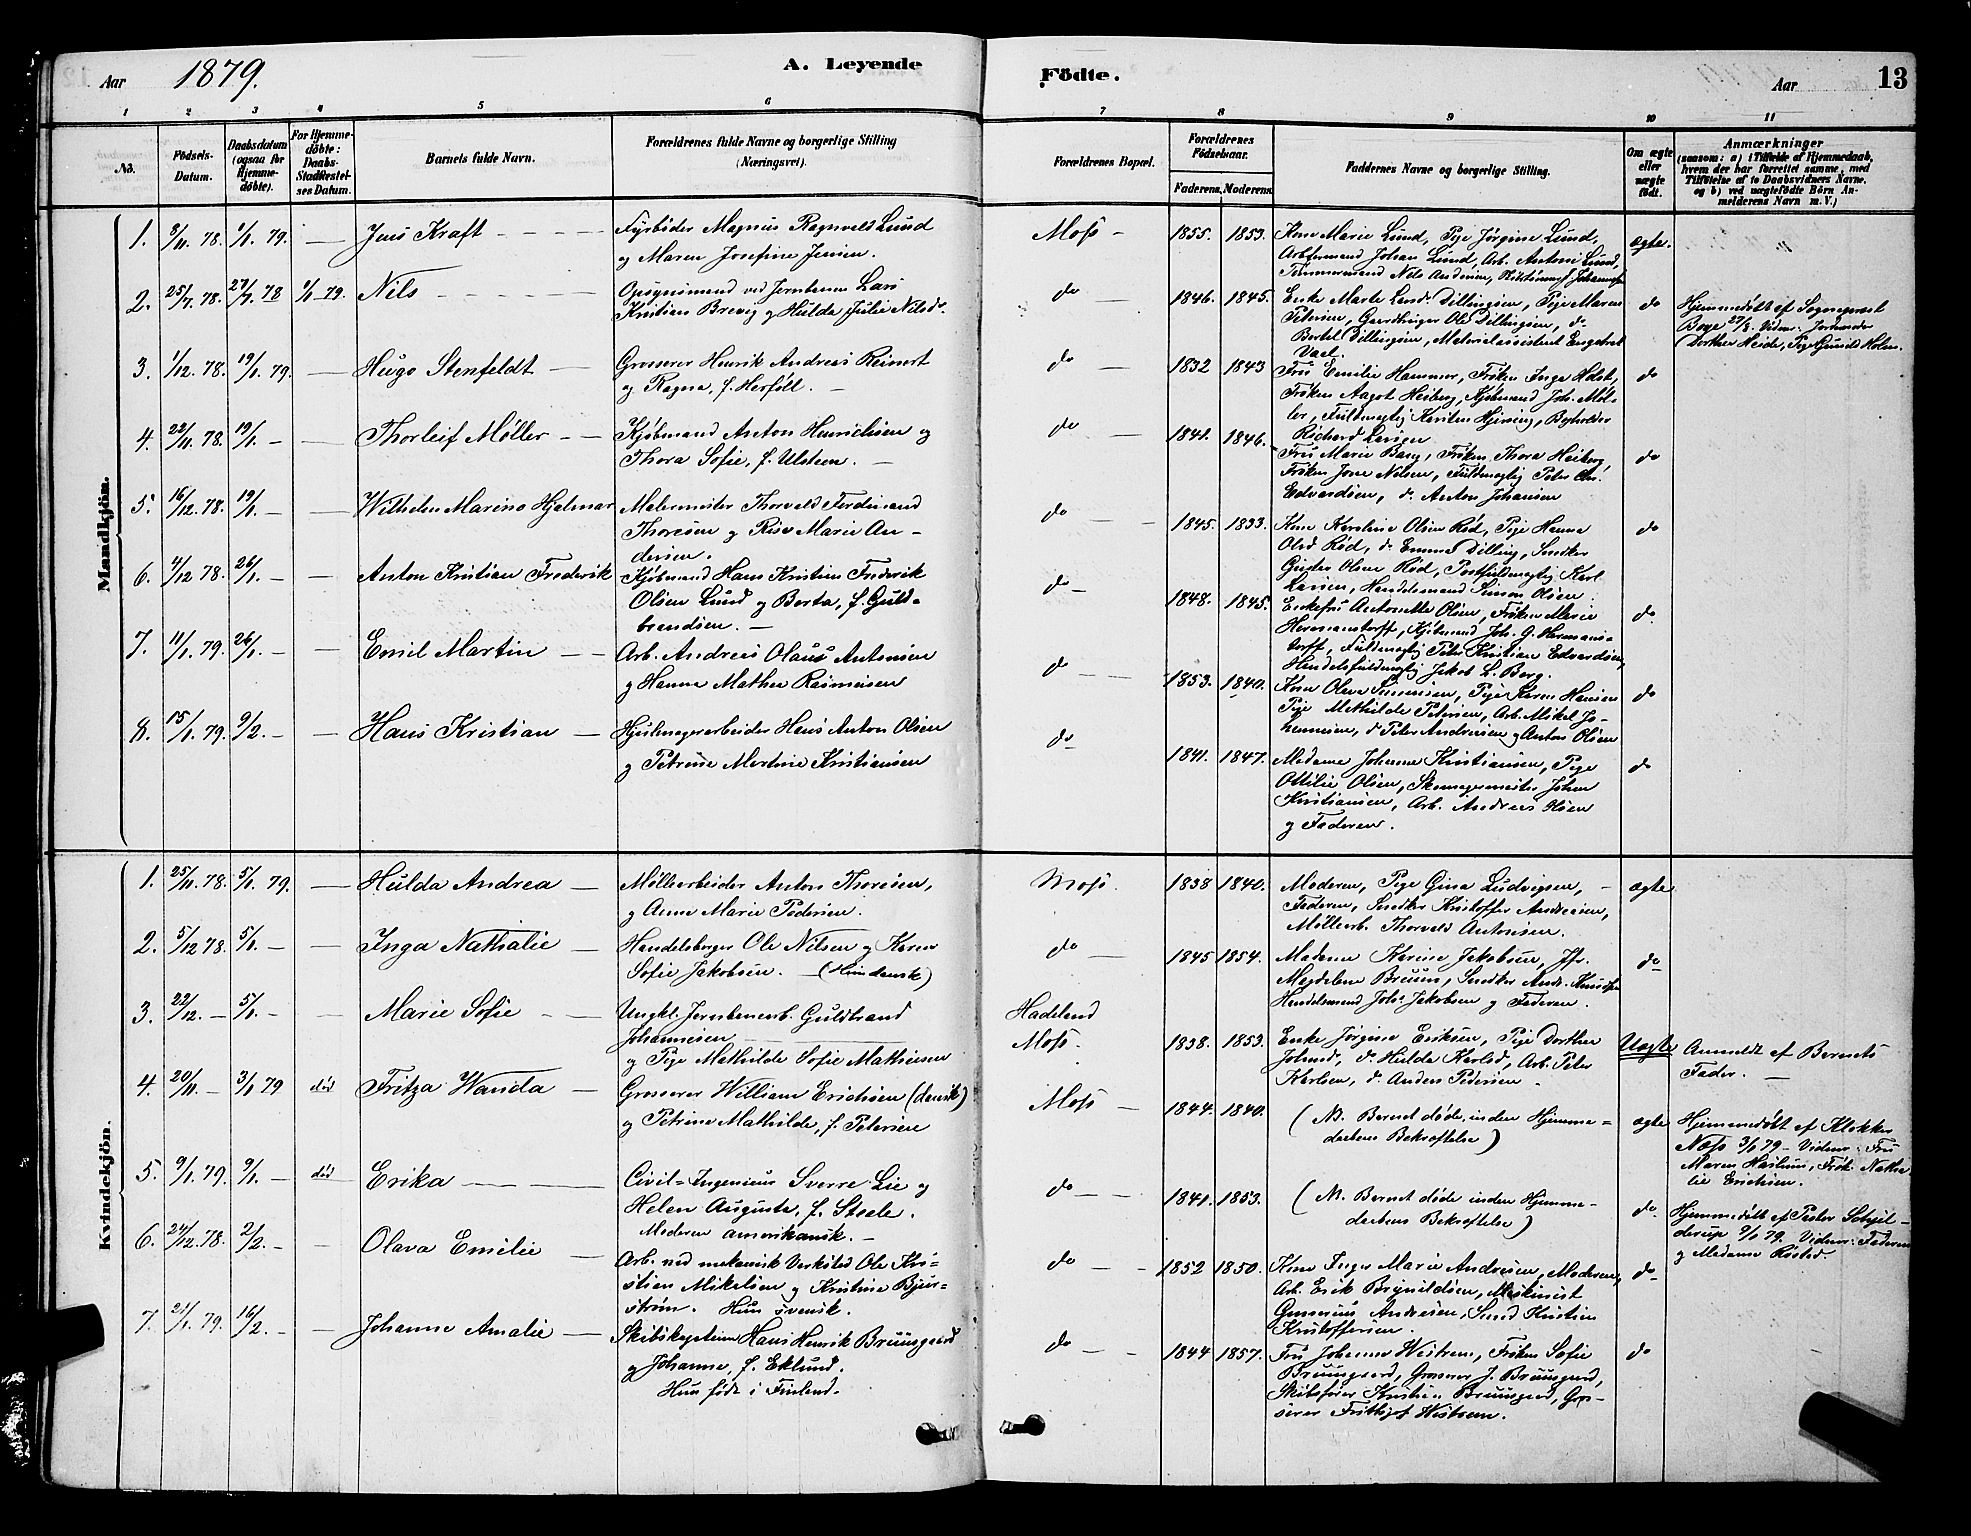 Aar 1879. A. Levende
Födte. Aar 13
1 2 3 4 5 6
7 8 9 10 11
No. Födsels-Datum. Daabsdatum (ogsaa for Hjemmedøbte). For Hjemmedøbte: Daabs-Stadfæstelses Datum. Barnets fulde Navn. Forældrenes fulde Navne og borgerlige Stilling (Næringsvei).
Forældrenes Bopæl. Forældrenes Födselsaar. Faderens. Moderens. Faddernes Navne og borgerlige Stilling. Om ægte eller uægte født. Anmærkninger (saasom: a) i Tilfælde af Hjemmedaab, hvem der har forrettet samme, med Tilföielse af to Daabsvidners Navne, og b) ved uægtefödte Börn Anmelderens Navn m. V.)
Mandkjön.
1. 8/11 78. 1/1 79. — Jens Kraft — Fyrbøder Magnus Ragnvald Lund
og Maren Josefine Jensen.
Moss — 1855. 1853. Kone Marie Lund, Pige Jørgine Lund, ægte.
Arbeidsmand Johan Lund, Arb. Antoni Lund,
Tømmermand Nils Andersen,
2. 25/7 78. 27/7 78 1/1 79. Nils — Opsynsmand ved Jernbanen Lars
Kristian Brevig og Hulda Julie Nilsd.
do — 1846. 1845. Enke Marte Lund Dillingøen, Pige Maren do
Petersen, Gaardbruger Ole Dillingøen, do
Bertel Dillingøen, Materialassistent Engebret
Vael.
Hjemmedøbt af Sogneprest
Boye 27/7. Vidner: Jordmoder
Dorthea Heide, Pige Gunild Holm.
3. 1/12 78. 19/1 79. — Hugo Stenfeldt — Grosserer Henrik Andreas Reinert
og Ragna, f. Herføll. —
do — 1832 1843 Fru Emilie Hammer, Frøken Inga Holst, do
Frøken Aagot Heiberg, Kjøbmand Joh. Møller,
Fuldmægtig Karsten Hjersing, Bogholder
Richard Larsen
4. 22/11 78. 19/1 — — Thorleif Møller — Kjøbmand Anton Henrichsen og
Thora Sofie, f. Ulsteen. —
do — 1841. 1846. Fru Marie Bang, Frøken Thora Heiberg, do
Frøken Jone Nilsen, Fuldmægtig Peter Chr.
Edvardsen, do Anton Johansen
5. 16/12 78. 19/1 — — Wilhelm Marino Hjalmar Malermester Thorvald Ferdinand
Thoresen og Risø Marie Andersen.
do — 1845. 1833. Kone Karoline Olsen Rød, Pige Hanna do
Olsd. Rød, do Emma Dilling, Snedker
Gusder Olsen Rød, Postfuldmægtig Karl
Larsen, Handelsmand Simon Olsen.
6. 4/12 78. 26/1 — — Anton Kristian Frederik Kjøbmand Hans Kristian Frederik
Olsen Lund og Berta, f. Guldbrandsen. —
do — 1848. 1845. Enkefru Antonette Olsen, Frøken Marie do.
Hermanstorff, Kjøbmand Joh. G. Hermanstorff,
Fuldmægtig Peter Kristian Edvardsen,
Handelsfuldmægtig Jakob L. Berg.
7. 11/1 79. 26/1 — — Emil Martin — Arb. Andreas Olaus Antonsen
og Hanna Mathea Rasmussen
do — 1853. 1840. Kone Olava Simensen, Pige Karen Hansen do
Pige Mathilde Petersen, Arb. Mikal Johannesen,
do Peter Andresen og Anton Olsen
8. 15/1 79. 9/2 — — Hans Kristian — Hjulmagerarbeider Hans Anton Olsen
og Petrine Martine Kristiansen
do — 1841. 1847. Madame Johanne Kristiansen, Pige do
Ottilie Olsen, Skomagermester Johan
Kristiansen, Arb. Andreas Olsen
og Faderen.
Kvindekjön.
1. 25/11 78. 5/1 79. — Hulda Andrea — Møllearbeider Anton Thoresen,
og Anne Marie Pedersen.
Moss. 1838 1840. Moderen, Pige Gina Ludvigsen, — ægte
Faderen, Snedker Kristoffer Andresen,
Møllearb. Thorvald Antonsen.
2. 5/12 78. 5/1 — — Inga Nathalie — Handelsborger Ole Nilsen og Karen
Sofie Jakobsen. — (Hun dansk)
do — 1845 1854. Madame Karine Jakobsen, Jfr. do
Magdalene Bruun, Snedker Andr. Knudsen
Handelsmand Johs. Jakobsen og Faderen.
3. 22/12 — 5/1 — — Marie Sofie — Ungkl. Jernbanearb. Guldbrand
Johannesen
og Pige Mathilde Sofie Mathiesen
Hadeland
Moss. 1838. 1853. Enke Jørgine Eriksen, Pige Dorthea Uægte
Johnsd., do Hulda Karlsd, Arb. Peter
Karlsen, do Anders Pedersen —
Anmeldt af Barnets
Fader. —
4. 20/11 — 3/1 79 død Fritza Wanda — Grosserer William Erichsen (dansk)
og Petrine Mathilde, f. Petersen
Moss — 1844. 1840. (NB. Barnet døde inden Hjemme= ægte
daabens Bekræftelse)
Hjemmedøbt af Klokker
Næss 3/1 79 — Vidner: Fru
Maren Haslum, Frøk. Nathalie
Erichsen.
5. 9/1 79. 9/1 — død Erika — Civil=Ingeniør Sverre Lie og
Helen Augusta, f. Steele.
Moderen amerikansk. —
do — 1841. 1853. (NB. Barnet døde inden Hjemme= do
daabens Bekræftelse)
Hjemmedøbt af Pastor
9/1 79. Vidner: Faderen
og Madame Røsted.
6. 24/12 78. 2/2 — — Olava Emilie — Arb. ved mekanisk Verksted Ole Kristian
Mikelsen og Kristine Bjurstrøm.
Hun svensk.
do — 1852 1850. Kone Inger Marie Andresen, Moderen, do
Arb. Erik Brynildsen, Maskinist
Gunerius Andresen, Smed Kristian
Kristoffersen.
7. 21/1 79. 16/2 — — Johanne Amalie — Skibskaptein Hans Henrik Bruusgaard
og Johanne, f. Eklund.
Hun født i Finland.
do — 1844 1857. Fru Johanne Westrem, Frøken Sofie do
Bruusgaard, Grosserer J. Bruusgaard,
Skibsfører Kristian Bruusgaard, Grosserer
Frithjof Westrem.